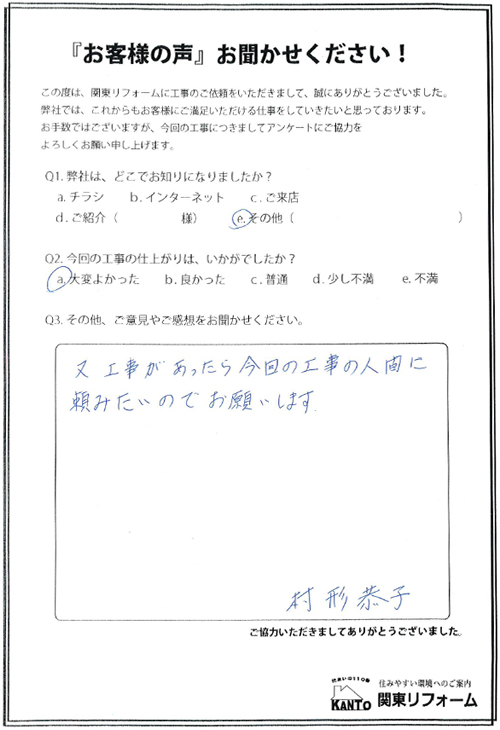 『お客様の声』お聞かせください！
この度は、関東リフォームに工事のご依頼をいただきまして、誠にありがとうございました。
弊社では、これからもお客様にご満足いただける仕事をしていきたいと思っております。
お手数ではございますが、今回の工事につきましてアンケートにご協力を
よろしくお願い申し上げます。
Q1. 弊社は、どこでお知りになりましたか？
a. チラシ　b. インターネット　c. ご来店
d. ご紹介（　　　　様）　e. その他（　　　　　　　　　　）
Q2. 今回の工事の仕上がりは、いかがでしたか？
a. 大変よかった　b. 良かった　c. 普通　d. 少し不満　e. 不満
Q3. その他、ご意見やご感想をお聞かせください。
又工事があったら今回の工事の人間に
頼みたいのでお願いします
村形恭子
ご協力いただきましてありがとうございました。
住まいの110番
KANTO
住みやすい環境へのご案内
関東リフォーム